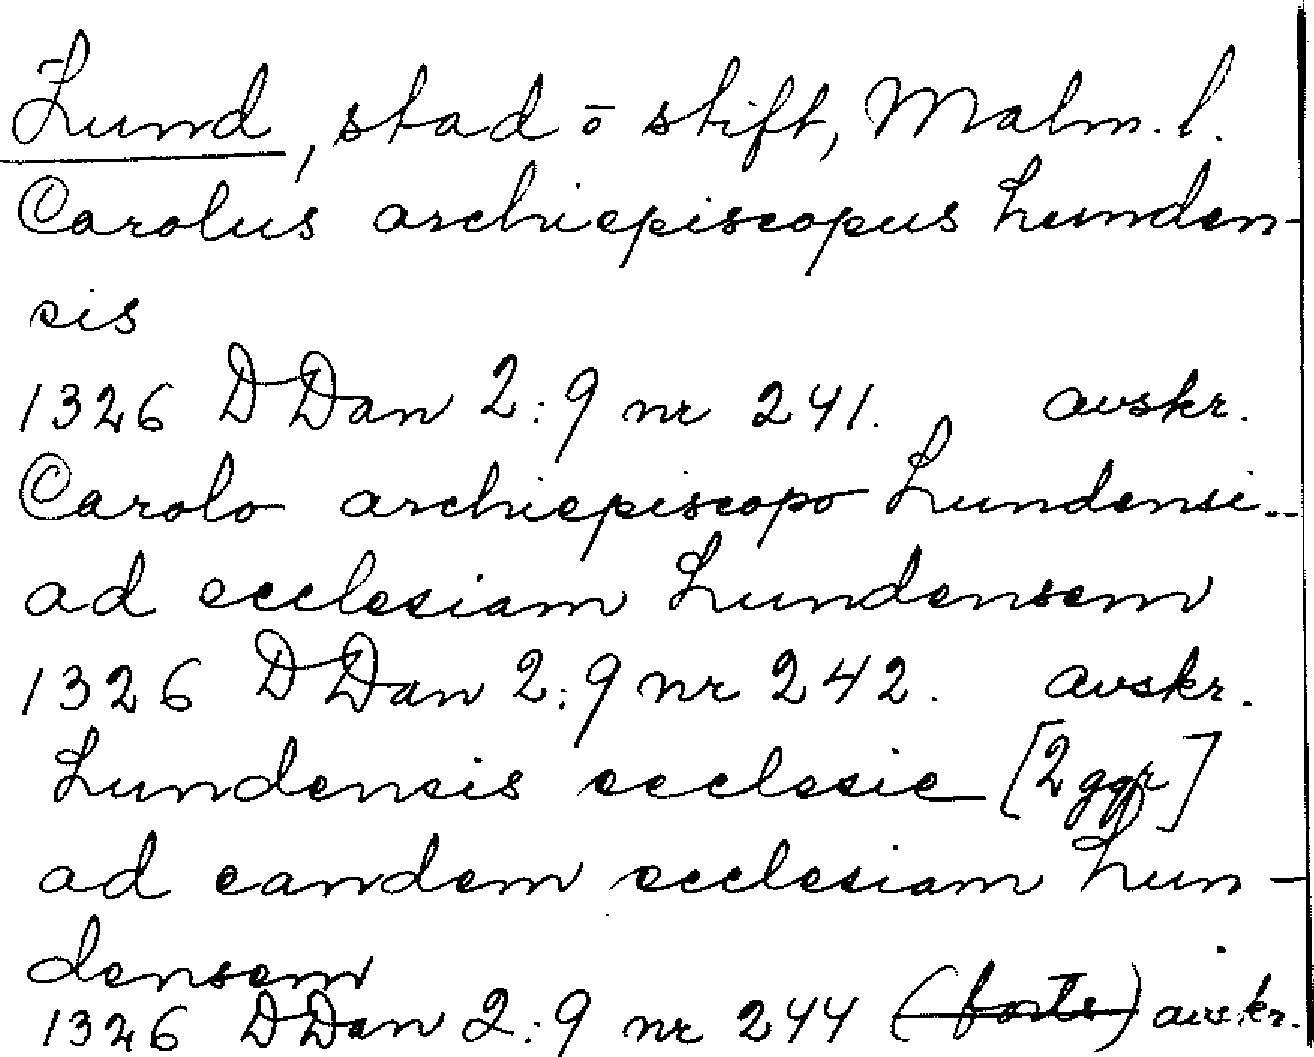 Lund, stad o stift, Malm. l.
Carolus archiepiscopus Lunden-
sis
1326 DDan 2:9 nr 241. avskr.
Carolo archiepiscopo Lundensi..
ad ecclesiam Lundensem
1326 DDan 2:9 nr 242. avskr.
Lundensis ecclesie [2 ggr]
ad eandem ecclesiam Lun-
densem
1326 DDan 2:9 nr 244 (forte) avskr.